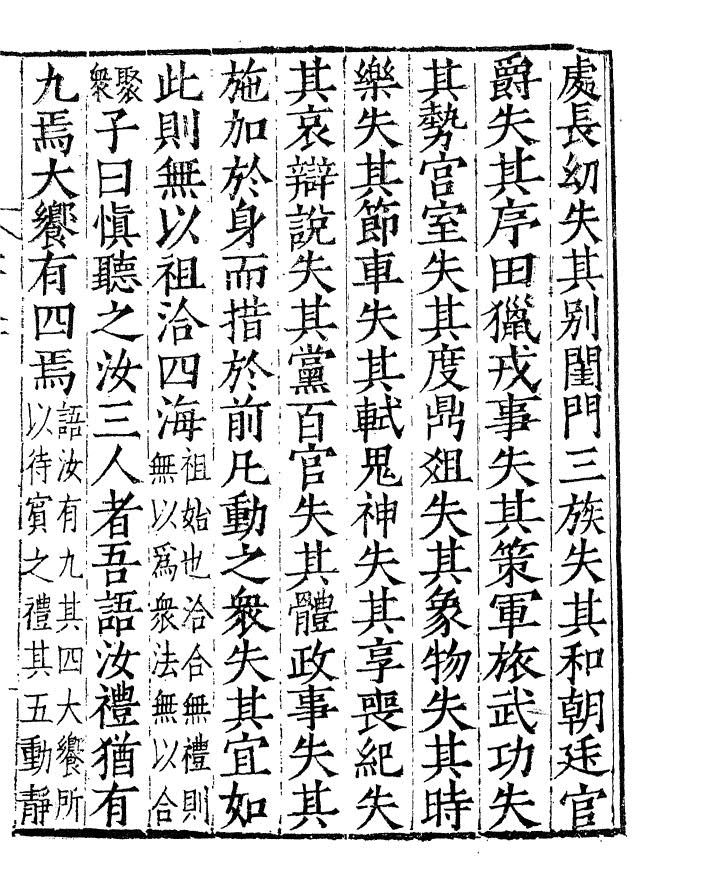 處長幼失其别閨門三族失其和朝廷官
爵失其序田獵戎事失其策軍旅武功失
其勢宫室失其度鼎俎失其象物失其時
樂失其節車失其軾鬼神失其享喪紀失
其哀辯説失其黨百官失其體政事失其
施加於身而措於前凡動之衆失其宜如
此則無以祖洽四海祖始也洽合無禮則無以爲衆法無以合
聚衆子曰慎聽之汝三人者吾語汝禮猶有
九焉大饗有四焉語汝有九其四大饗所以待賓之禮其五動靜